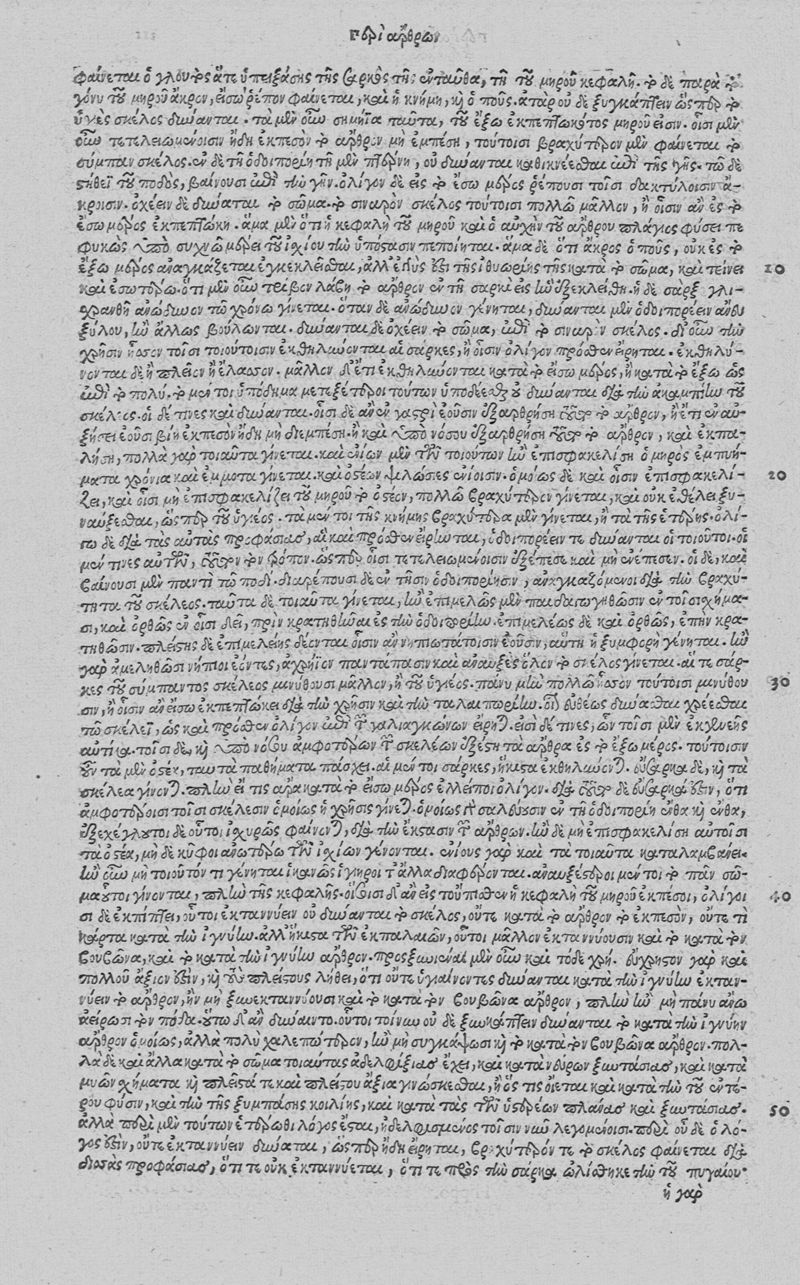 περὶ ἄρθρων
φαίνεται ὁ γλουτὸς ἅτε ὑπειξάσης τῆς σαρκὸς τῆς ἐνταῦθα, τῇ τοῦ μηροῦ κεφαλῇ. τὸ δὲ παρὰ τὸ
γόνυ τοῦ μηροῦ ἄκρον, εἴσω ῥέπον φαίνεται, καὶ ἡ κνήμη, καὶ ὁ πούς. ἀτὰρ οὐδὲ ξυγκάπτειν ὥσπερ τὸ
ὑγιὲς σκέλος δύνανται. τὰ μὲν οὖν σημήϊα ταῦτα, τοῦ ἔξω ἐκπεπτωκότος μηροῦ εἰσιν. οἷσι μὲν
οὖν τετελειωμένοισιν ἤδη ἐκπεσὸν τὸ ἄρθρον μὴ ἐμπέσῃ, τούτοισι βραχύτερον μὲν φαίνεται τὸ
σύμπαν σκέλος. ἐν δὲ τῇ ὁδοιπορίῃ τῇ μὲν πτέρνῃ, οὐ δύνανται καθικνέεσθαι ἐπὶ τῆς γῆς. τῷ δὲ
στήθει τοῦ ποδὸς, βαίνουσι ἐπὶ τὴν γῆν. ὀλίγον δὲ εἰς τὸ ἔσω μέρος ῥέπουσι τοῖσι δακτύλοισιν ἄ-
κροισιν. ὀχέειν δὲ δύναται τὸ σῶμα. τὸ σιναρὸν σκέλος τούτοισι πολλῷ μᾶλλον, ἢ οἷσιν ἂν ἐς τὸ
ἔσω μέρος ἐκπεπτώκῃ. ἅμα μὲν ὅτι ἡ κεφαλὴ τοῦ μηροῦ καὶ ὁ αὐχὴν τοῦ ἄρθρου πλάγιος φύσει πε
φυκὼς ὑπὸ συχνῷ μέρει τοῦ ἰσχίου τὴν ὑπόστασιν πεποίηται. ἅμα δὲ ὅτι ἄκρος ὁ ποὺς, οὐκ ἐς τὸ
ἔξω μέρος ἀναγκάζεται ἐγκεκλεῖσθαι, ἀλλ' ἐγγὺς ἐστι τῆς ἰθυωρίης τῆς κατὰ τὸ σῶμα, καὶ τείνει 10
καὶ ἐσωτέρω. ὅτι μὲν οὖν τρίβον λάβῃ τὸ ἄρθρον ἐν τῇ σαρκὶ εἰς ἣν ἐξεκλείθη. ἡ δὲ σὰρξ γλι-
χρανθῇ ἀνώδυνον τῷ χρόνῳ γίνεται. ὅταν δὲ ἀνώδυνον γένηται, δύνανται μὲν ὁδοιπορέειν ἄνευ
ξύλου, ἢν ἄλλως βούλωνται. δύνανται δὲ ὀχέειν τὸ σῶμα, ἐπὶ τὸ σιναρὸν σκέλος. δι' οὖν τὴν
χρῆσιν ἧσσον τοῖσι τοιούτοισιν ἐκθηλύνονται αἱ σάρκες, ἢ οἷσιν ὀλίγον πρόσθεν εἴρηται. ἐκθηλύ-
νονται δὲ ἢ πλεῖον ἢ ἔλασσον. μᾶλλον δέ τι ἐκθηλύνονται κατὰ τὸ εἴσω μέρος, ἢ κατὰ τὸ ἔξω ὡς
ἐπὶ τὸ πολύ. τὸ μέντοι ὑπόδημα μετεξέτεροι τούτων ὑποδέεσθαι οὐ δύνανται διὰ τὴν ἀκαμπίην τοῦ
σκέλεος. οἱ δέ τινες καὶ δύνανται. οἷσι δὲ ἂν ἐν γαστρὶ ἐοῦσιν ἐξαρθρήσῃ τοῦτο τὸ ἄρθρον, ἢ ἔτι ἐν αὐ-
ξήσει ἐοῦσι βίῃ ἐκπεσὸν ἤδη μὴ διεμπέσῃ. ἢ καὶ ὑπὸ νόσου ἐξαρθρήσῃ τοῦτο τὸ ἄρθρον, καὶ ἐκπα-
λήσῃ, πολλὰ γὰρ τοιαῦτα γίνεται. καὶ ἐνίων μὲν τῶν τοιούτων ἢν ἐπισφακελίσῃ ὁ μηρὸς ἐμπυή-
ματα χρόνια καὶ ἔμμοτα γίνεται. καὶ ὀστέων ψιλώσιες ἐνίοισιν. ὁμοίως δὲ καὶ οἷσιν ἐπισφακελί- 20
ζει, καὶ οἷσι μὴ ἐπισφακελίζει τοῦ μηροῦ τὸ ὀστέον, πολλῷ βραχύτερον γίνεται, καὶ οὐκ ἐθέλει ξυ-
ναύξεσθαι, ὥσπερ τοῦ ὑγιέος. τὰ μέντοι τῆς κνήμης βραχύτερα μὲν γίνεται, ἢ τὰ τῆς ἑτέρης. ὀλί-
γῳ δὲ διὰ τὰς αὐτὰς προφάσιας, αἳ καὶ πρόσθεν εἴρηνται, ὁδοιπορέειν τε δύνανται οἱ τοιοῦτοι. οἱ
μέν τινες αὐτῶν, τοῦτον τὸν τρόπον. ὥσπερ οἷσι τετελειωμένοισιν ἐξέπεσε καὶ μὴ ἐνέπεσεν. οἱ δὲ, καὶ
βαίνουσι μὲν παντὶ τῷ ποδί. διαρέπουσι δὲ ἐν τῇσιν ὁδοιπορίῃσιν, ἀναγκαζόμενοι διὰ τὴν βραχύ-
τητα τοῦ σκέλεος. ταῦτα δὲ τοιαῦτα γίνεται, ἢν ἐπιμελῶς μὲν παιδαγωγηθῶσιν ἐν τοῖσι σχήμα-
σι, καὶ ὀρθῶς ἐν οἷσι δεῖ, πρὶν κρατηθῆναι ἐς τὴν ὁδοιπορίην. ἐπιμελέως δὲ καὶ ὀρθῶς, ἐπὴν κρα-
τηθῶσιν. πλείστης δὲ ἐπιμελείης δέονται οἷσιν ἂν νηπιωτάτοισιν ἐοῦσιν, αὕτη ἡ ξυμφορὴ γένηται. ἢν
γὰρ ἀμεληθῶσι νήπιοι ἐόντες, ἀχρήϊον παντάπασιν καὶ ἀναυξὲς ὅλον τὸ σκέλος γίνεται. αἵ τε σάρ-
κες τοῦ σύμπαντος σκέλεος μινύθουσι μᾶλλον, ἢ τοῦ ὑγιέος. πάνυ μὴν πολλῷ ἧσσον τούτοισι μινύθου 30
σιν, ἢ οἷσιν ἂν εἴσω ἐκπεπτώκει διὰ τὴν χρῆσιν καὶ τὴν ταλαιπωρίην. οἷον εὐθέως δύνασθαι χρέεσθαι
τῷ σκέλεϊ, ὡς καὶ πρόσθεν ὀλίγον ἐπὶ τῶν γαλιαγκώνων εἴρηται. εἰσὶ δέ τινες, ὧν τοῖσι μὲν ἐκ γενεῆς
αὐτίκα. τοῖσι δὲ, καὶ ὑπὸ νόσου ἀμφοτέρων τῶν σκελέων ἐξέστη τὰ ἄρθρα ἐς τὸ ἔξω μέρος. τούτοισιν
οὖν τὰ μὲν ὀστέα, ταυτὰ παθήματα πάσχει. αἱ μέντοι σάρκες, ἥκιστα ἐκθηλύνονται. εὔσαρκα δὲ, καὶ τὰ
σκέλεα γίνονται. πλὴν εἴ τις ἄρα κατὰ τὸ εἴσω μέρος ἐλλείποι ὀλίγον. διὰ τοῦτο δὲ εὔσαρκά ἐστιν, ὅτι
ἀμφοτέροισι τοῖσι σκέλεσιν ὁμοίως ἡ χρῆσις γίνεται. ὁμοίως γὰρ σαλεύουσιν ἐν τῇ ὁδοιπορίῃ ἔνθα καὶ ἔνθα,
ἐξεχέγλουτοι δὲ οὗτοι ἰσχυρῶς φαίνονται, διὰ τὴν ἔκστασιν τῶν ἄρθρων. ἢν δὲ μὴ ἐπισφακελίσῃ αὐτοῖσι
τὰ ὀστέα, μὴ δὲ κυφοὶ ἀνωτέρω τῶν ἰσχίων γένωνται. ἐνίους γὰρ καὶ τὰ τοιαῦτα καταλαμβάνει.
ἢν οὖν μὴ τοιοῦτόν τι γένηται ἱκανῶς ὑγιηροὶ τἄλλα διαφέρονται. ἀναυξέστεροι μέντοι τὸ πᾶν σῶ-
μα οὗτοι γίνονται, πλὴν τῆς κεφαλῆς. οἷσι δ' ἂν εἰς τοὔπισθεν ἡ κεφαλὴ τοῦ μηροῦ ἐκπέσοι, ὀλίγοι 40
σι δὲ ἐκπίπτει, οὗτοι ἐκτανύειν οὐ δύνανται τὸ σκέλος, οὔτε κατὰ τὸ ἄρθρον τὸ ἐκπεσὸν, οὔτε τὶ
κάρτα κατὰ τὴν ἰγνύην. ἀλλ' ἥκιστα τῶν ἐκπαλαιῶν, οὗτοι μᾶλλον ἐκτανύουσιν καὶ τὸ κατὰ τὸν
βουβῶνα, καὶ τὸ κατὰ τὴν ἰγνύην ἄρθρον. προσξυνιέναι μὲν οὖν καὶ τόδε χρή. εὔχρηστον γὰρ καὶ
πολλοῦ ἄξιόν ἐστιν, καὶ τοὺς πλείστους λήθει, ὅτι οὔτε ὑγιαίνοντες δύνανται κατὰ τὴν ἰγνύην ἐκταν-
νύειν τὸ ἄρθρον, ἢν μὴ ξυνεκταννύουσι καὶ τὸ κατὰ τὸν βουβῶνα ἄρθρον, πλὴν ἢν μὴ πάνυ ἄνω
ἀείρωσι τὸν πόδα. οὕτω δ' ἂν δύναιντο. οὗτοι τοίνυν οὐδὲ ξυγκάπτειν δύνανται τὸ κατὰ τὴν ἰγνύην
ἄρθρον ὁμοίως, ἀλλὰ πολὺ χαλεπώτερον, ἢν μὴ συγκάμψωσι καὶ τὸ κατὰ τὸν βουβῶνα ἄρθρον. πολ-
λὰ δὲ καὶ ἄλλα κατὰ τὸ σῶμα τοιαύτας ἀδελφίξιας ἔχει, καὶ κατὰ νεύρων ξυντάσιας, καὶ κατὰ
μυῶν σχήματα καὶ πλεῖστά τε καὶ πλείστου ἄξια γινώσκεσθαι, ἢ ὅς τις οἴεται καὶ κατὰ τὴν τοῦ ἐντέ-
ρου φύσιν, καὶ τὴν τῆς ξυμπάσης κοιλίης, καὶ κατὰ τὰς τῶν ὑστερέων πλάνας καὶ ξυντάσιας. 50
ἀλλὰ περὶ μὲν τούτων ἑτέρωθι λόγος ἔσται, ἠδελφισμένος τοῖσι νῦν λεγομένοισι. περὶ οὗ δὲ ὁ λό-
γος ἐστὶν, οὔτε ἐκταννύειν δύναται, ὥσπερ ἤδη εἴρηται, βραχύτερόν τε τὸ σκέλος φαίνεται διὰ
δισσὰς προφάσιας, ὅτι τε οὐκ ἐκταννύεται, ὅτι τε πρὸς τὴν σάρκα ὠλίσθηκε τὴν τοῦ πυγαίου.
ἡ γὰρ